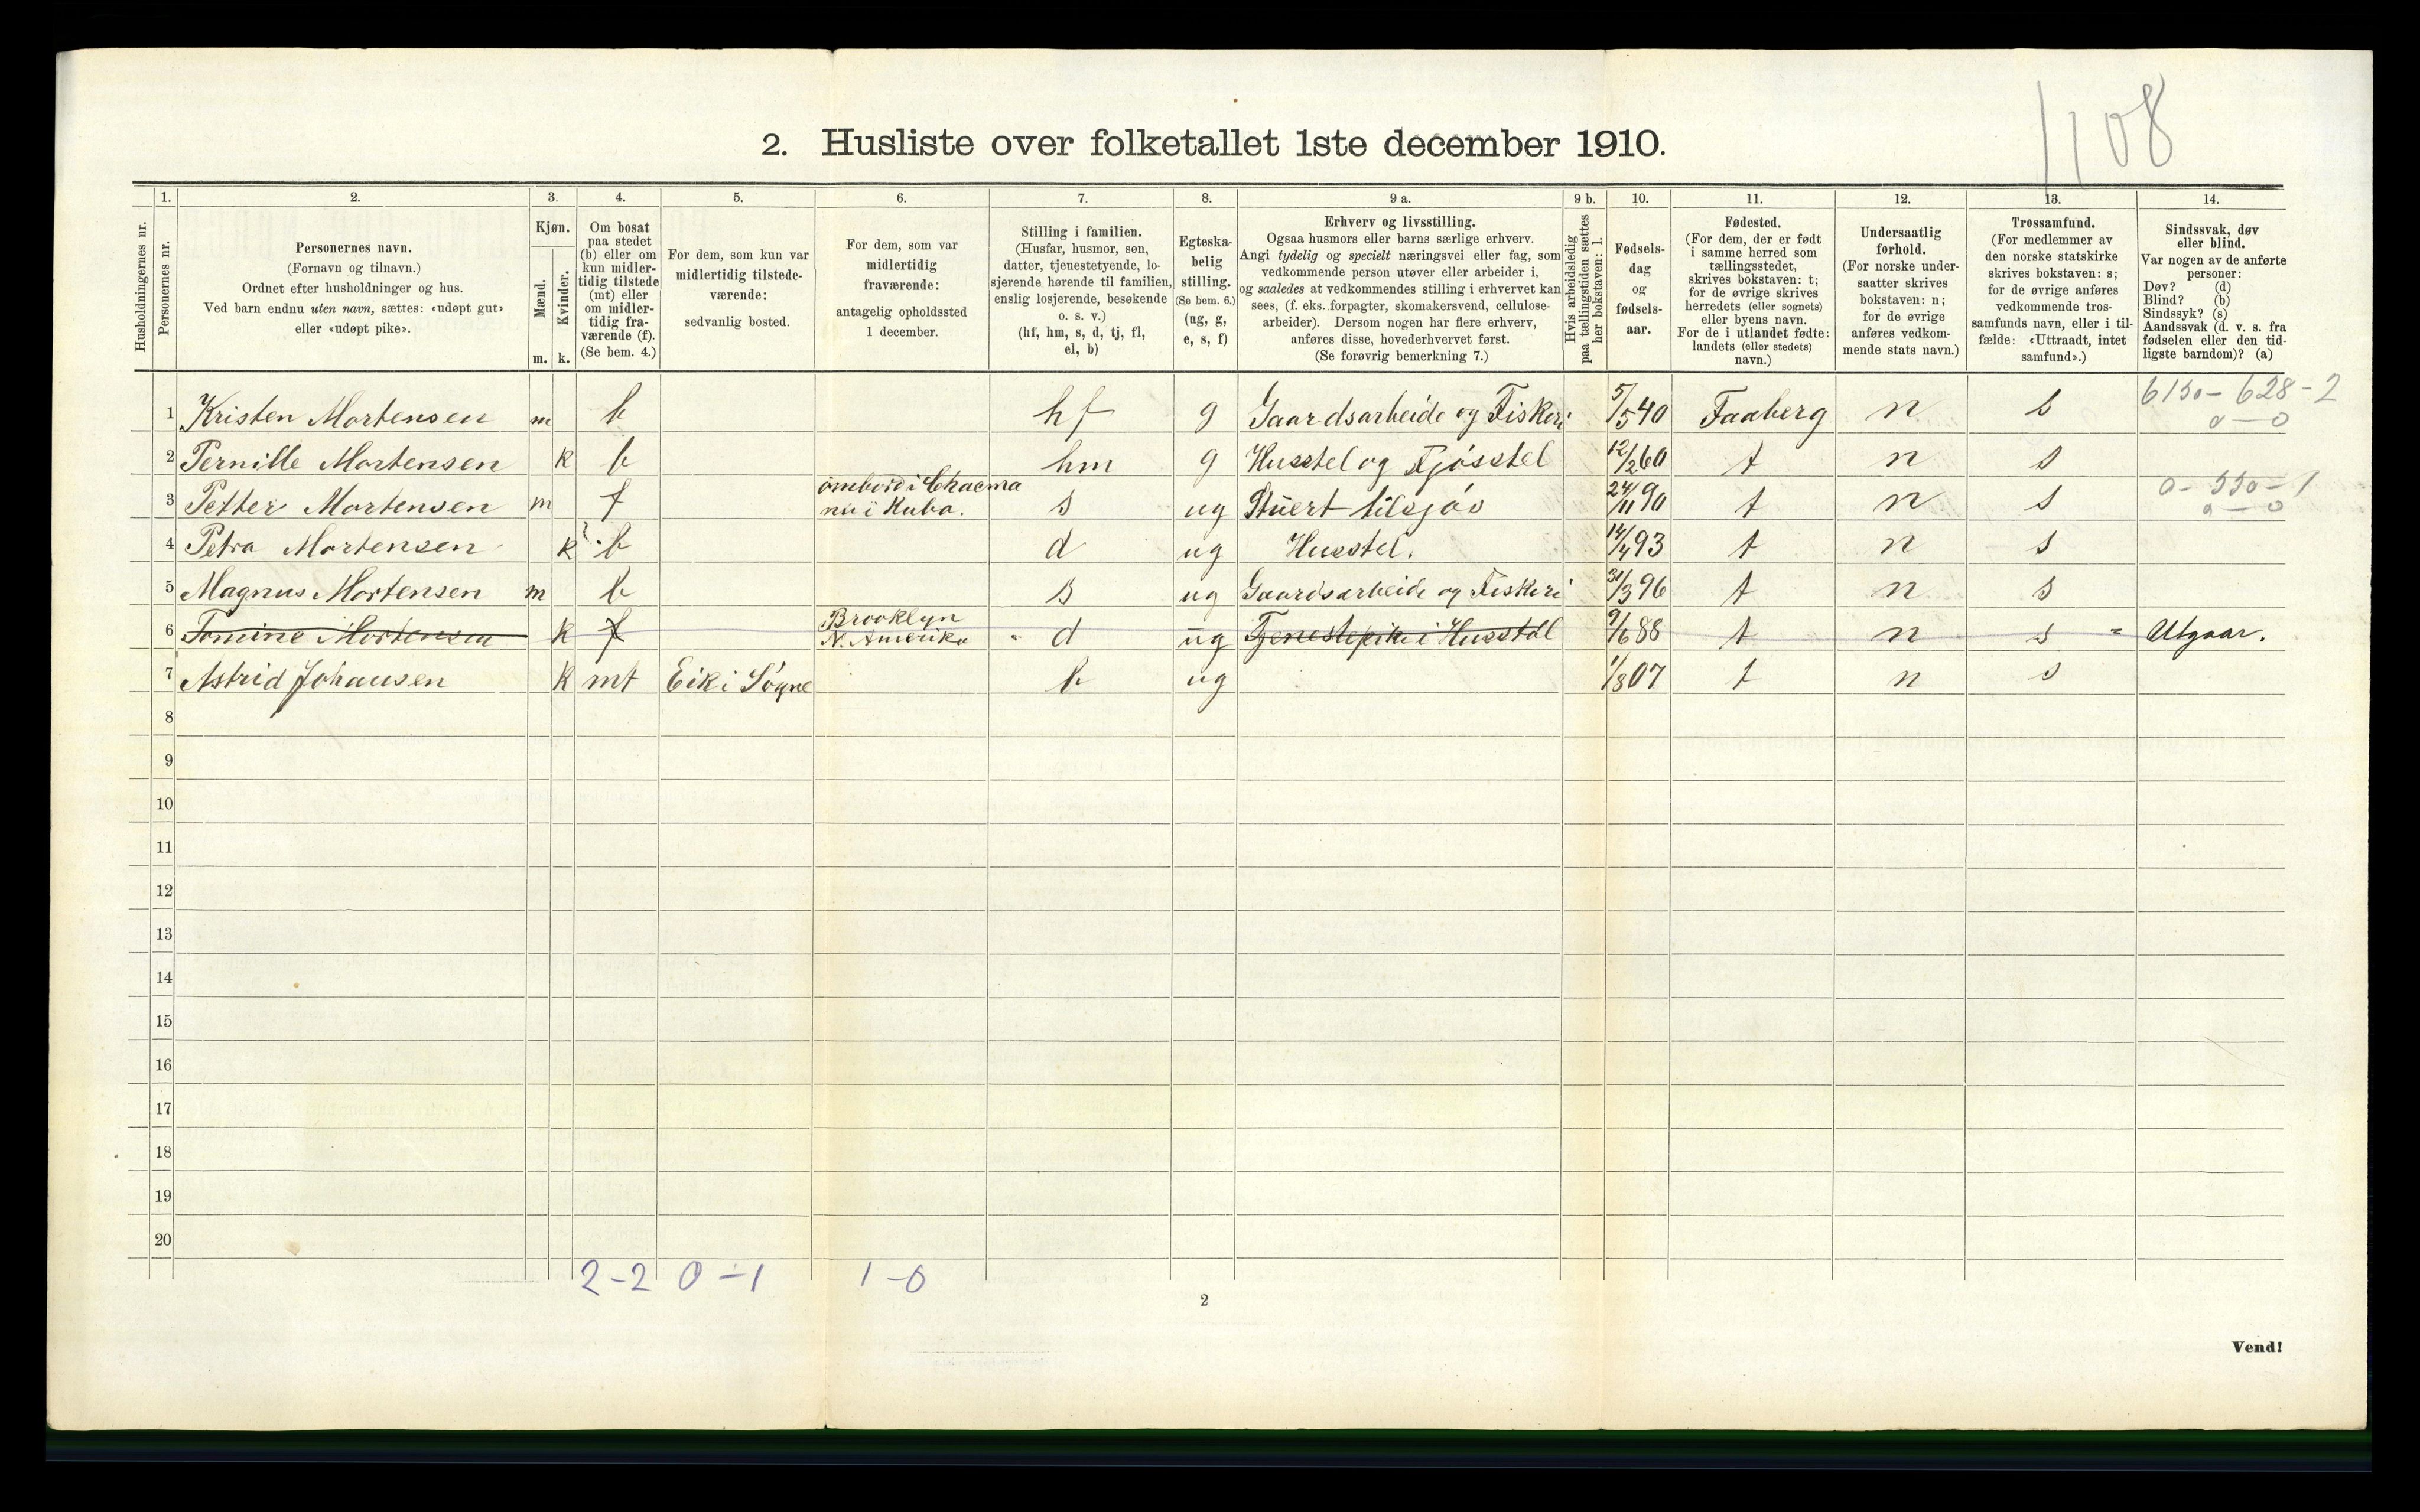 1108
2. Husliste over folketallet 1ste december 1910.
1. 2. 3. 4. 5. 6. 7. 8. 9 a. 9 b. 10. 11. 12. 13. 14.
Husholdningernes nr.
Personernes nr.
Personernes navn.
(Fornavn og tilnavn.)
Ordnet efter husholdninger og hus.
Ved barn endnu uten navn, sættes: «udøpt gut»
eller «udøpt pike».
Kjøn.
Mænd.
Kvinder.
m. k.
Om bosat
paa stedet
(b) eller om
kun midler-
tidig tilstede
(mt) eller
om midler-
tidig fra-
værende (f).
(Se bem. 4.)
For dem, som kun var
midlertidig tilstede-
værende:
sedvanlig bosted.
For dem, som var
midlertidig
fraværende:
antagelig opholdssted
1 december.
Stilling i familien.
(Husfar, husmor, søn,
datter, tjenestetyende, lo-
sjerende hørende til familien,
enslig losjerende, besøkende
o. s. v.)
(hf, hm, s, d, tj, fl,
el, b)
Egteska-
belig
stilling.
(Se bem. 6.)
(ug, g,
e, s, f)
Erhverv og livsstilling.
Ogsaa husmors eller barns særlige erhverv.
Angi tydelig og specielt næringsvei eller fag, som
vedkommende person utøver eller arbeider i,
og saaledes at vedkommendes stilling i erhvervet kan
sees, (f. eks. forpagter, skomakersvend, cellulose-
arbeider). Dersom nogen har flere erhverv,
anføres disse, hovederhvervet først.
(Se forøvrig bemerkning 7.)
Hvis arbeidsledig
paa tællingstiden sættes
her bokstaven: l.
Fødsels-
dag
og
fødsels-
aar.
Fødested.
(For dem, der er født
i samme herred som
tællingsstedet,
skrives bokstaven: t;
for de øvrige skrives
herredets (eller sognets)
eller byens navn.
For de i utlandet fødte:
landets (eller stedets)
navn.)
Undersaatlig
forhold.
(For norske under-
saatter skrives
bokstaven: n;
for de øvrige
anføres vedkom-
mende stats navn.)
Trossamfund.
(For medlemmer av
den norske statskirke
skrives bokstaven: s;
for de øvrige anføres
vedkommende tros-
samfunds navn, eller i til-
fælde: «Uttraadt, intet
samfund».)
Sindssvak, døv
eller blind.
Var nogen av de anførte
personer:
Døv? (d)
Blind? (b)
Sindssyk? (s)
Aandssvak (d. v. s. fra
fødselen eller den tid-
ligste barndom)? (a)
6150 - 628 - 2
0 - 0
1 Kristen Mortensen m b hf g Gaardsarbeide og Fiskeri 5/5 40 Faaberg n s
2 Pernille Mortensen k b hm g Husstel og Fjøsstel 12/2 60 t n s
ombord i Chacma
0 - 550 - 1
0 - 0
3 Petter Mortensen m f nu i Kuba. s ug Stuert tilsjøs 24/11 90 t n s
4 Petra Mortensen k b d ug Husstel. 14/4 93 t n s
5 Magnus Mortensen m b s ug Gaardsarbeide og Fiskeri 31/3 96 t n s
Brooklyn
6 Tomine Mortensen k f N. Amerika d ug Tjenestepike i Husstel 9/6 88 t n s = Utgaar.
7 Astrid Johansen k mt Eik i Søgne b ug 1/8 07 t n s
8
9
10
11
12
13
14
15
16
17
18
19
20
2-2 0-1 1-0
2
Vend!